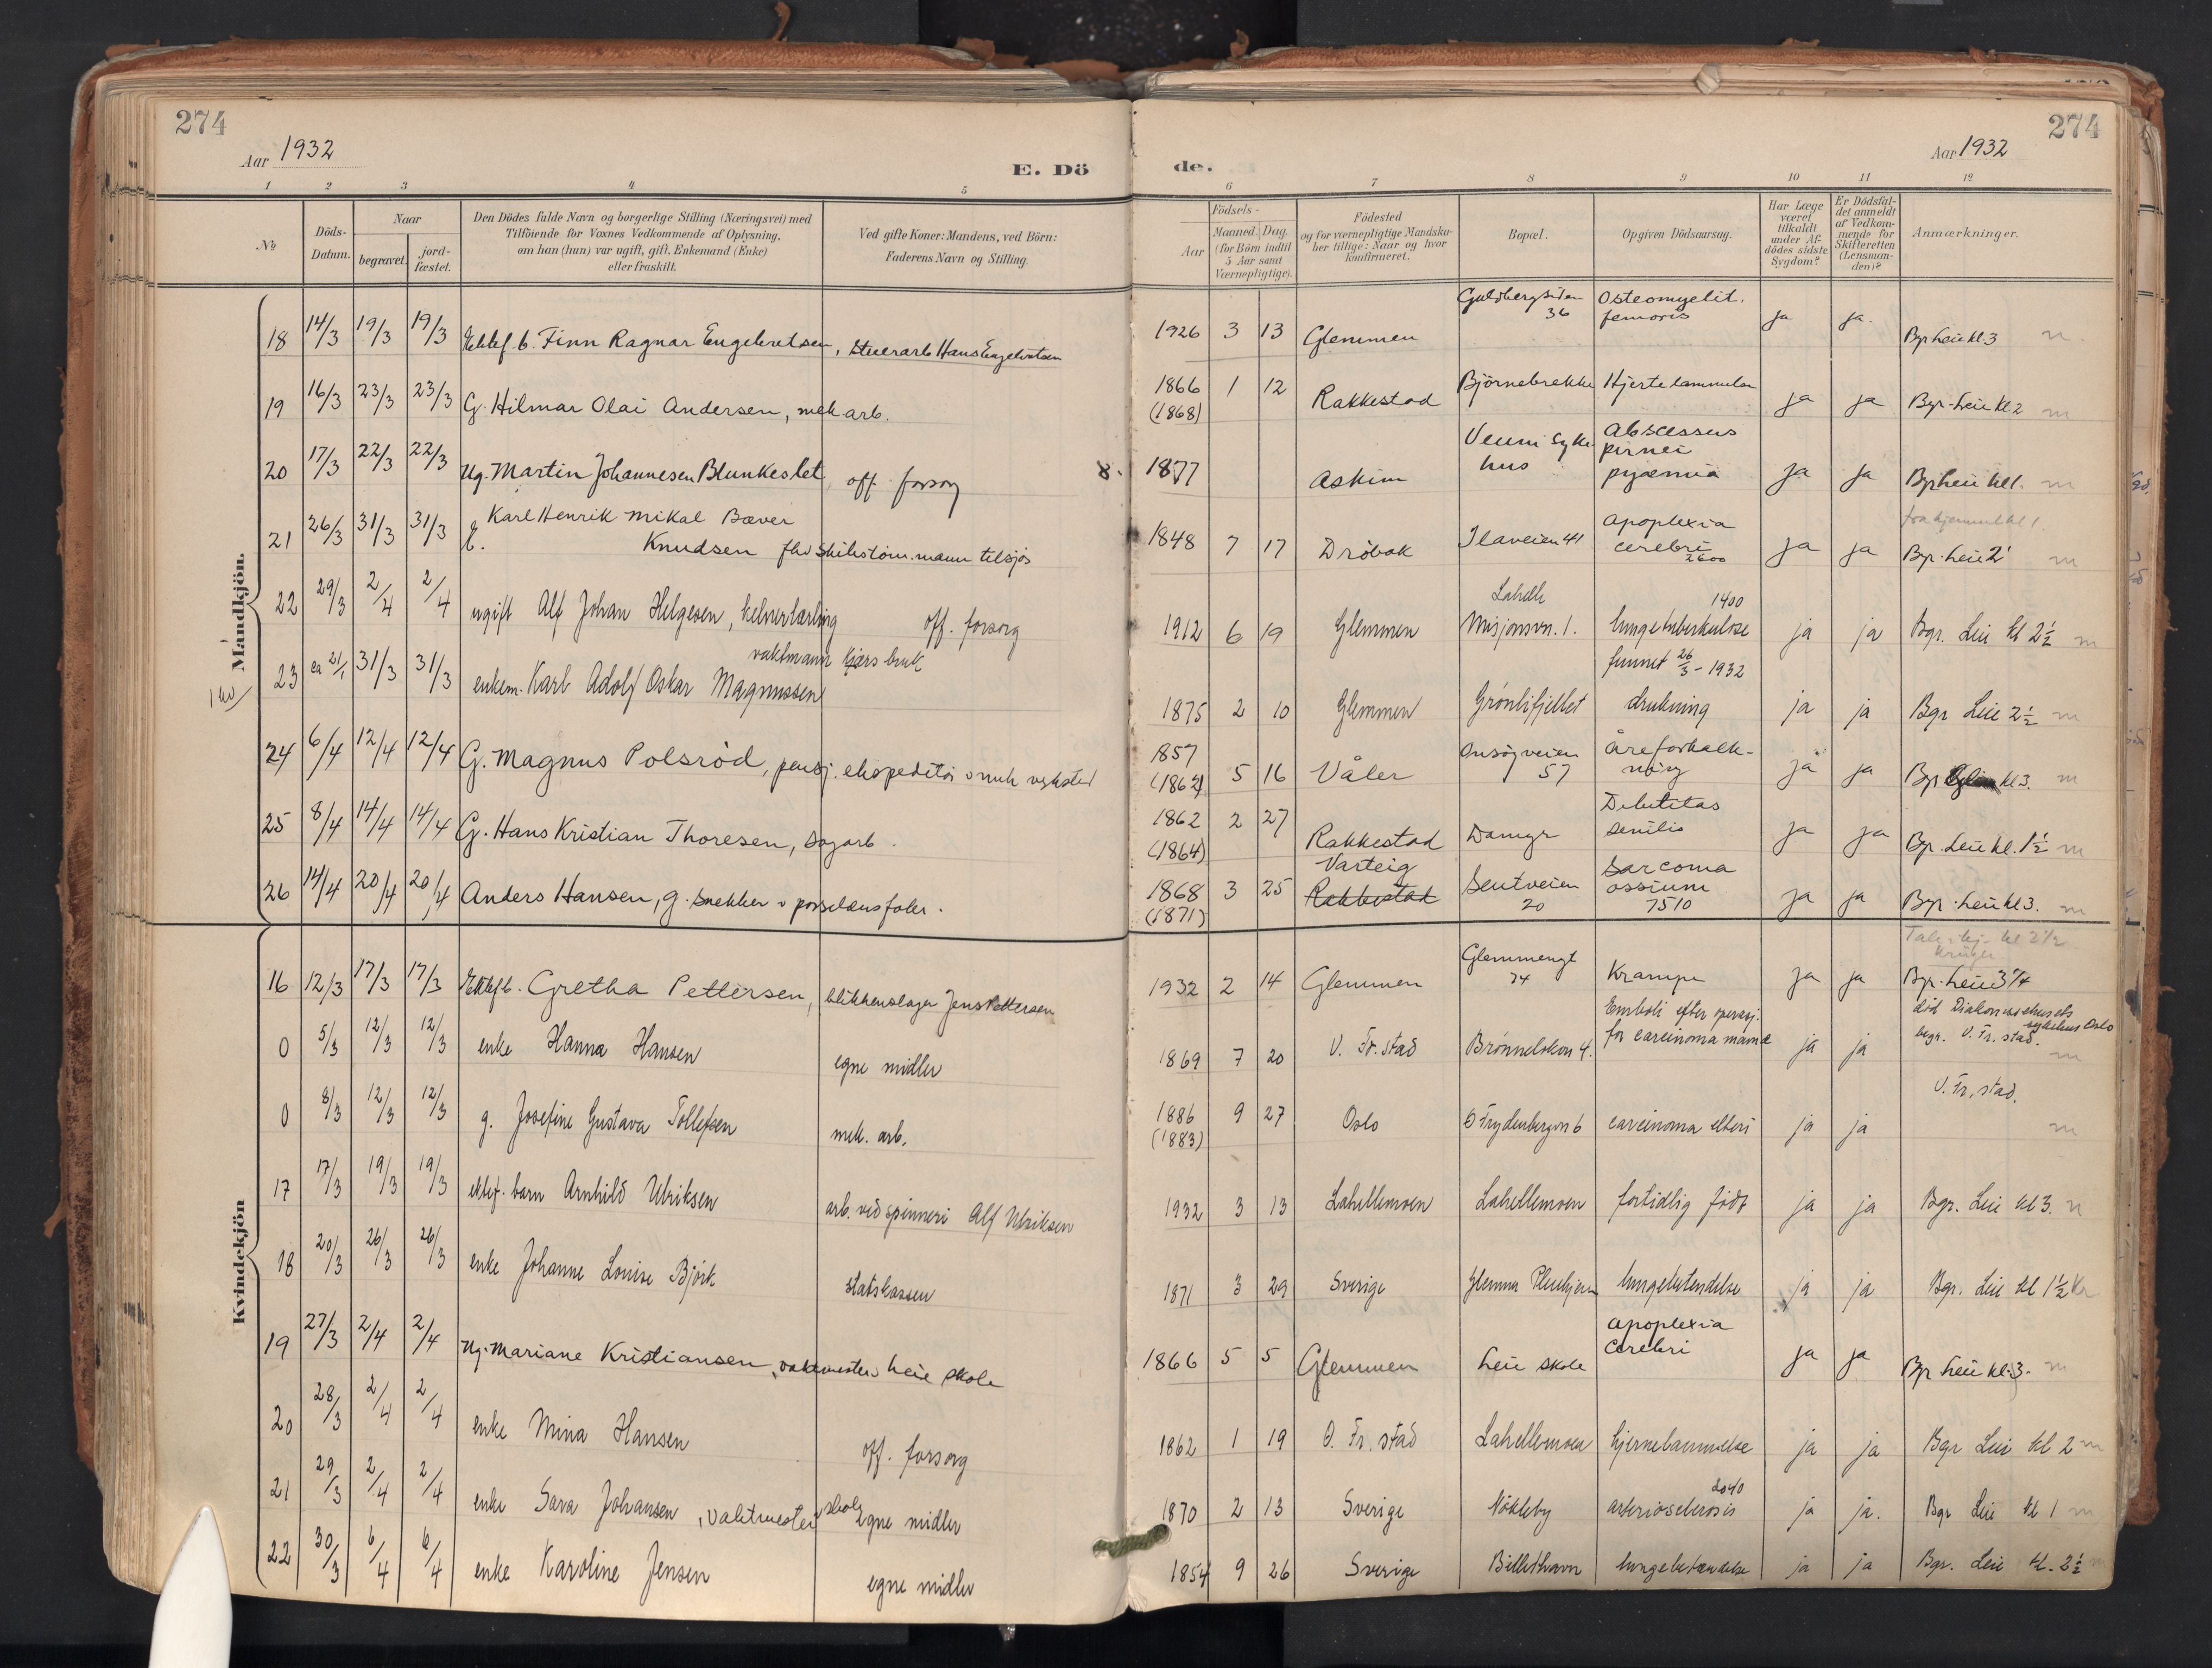 274
274
Aar 1932
E. Dö
de.
Aar 1932
1 2 3 4 5 6 7 8 9 10 11 12
No.
Döds-Datum.
Naar
begravet.
jord-fæstet.
Den Dödes fulde Navn og borgerlige Stilling (Næringsvei) med
Tilföiende for Voxnes Vedkommende af Oplysning,
om han (hun) var ugift, gift, Enkemand (Enke)
eller fraskilt.
Ved gifte Koner: Mandens, ved Börn:
Faderens Navn og Stilling.
Födsels-
Aar
Maaned. Dag.
(for Börn indtil
5 Aar samt
Værnepligtige).
Födested
og for værnepligtige Mandska-
ber tillige: Naar og hvor
konfirmeret.
Bopæl.
Opgiven Dödsaarsag.
Har Læge
været
tilkaldt
under Af-
dödes sidste
Sygdom?
Er Dödsfal-
det anmeldt
af Vedkom-
mende for
Skifteretten
(Lensman-
den)?
Anmærkninger.
Mandkjön.
18 14/3 19/3 19/3 Ektef. b. Finn Ragnar Engebretsen, stuerarb Hans Engebretsen 1926 3 13 Glemmen 36 Osteomyelit. femoris ja ja. Bgr Leie kl 3 m
19 16/3 23/3 23/3 G. Hilmar Olai Andersen, mek. arb. 1866 (1868) 1 12 Rakkestad Björnebrekke Hjertelammelse ja ja Bgr. Leie kl 2 m
20 17/3 22/3 22/3 Ug. Martin Johannesen Blunkeslet off. forsorg 1877 Askim Veum Sykehus Abscessus pyæmia ja ja Bgr Leie kl 1. m
21 26/3 31/3 31/3 Karl Henrik Mikal Bæver Knudsen tilsjøs 1848 7 17 Dröbak Ilaveien 41 Apoplexia cerebri 2600 ja ja Bgr. Leie 2 m
22 29/3 2/4 2/4 ugift Alf Johan Helgesen, kelnerlærling off. forsorg 1912 6 19 Glemmen Lahelle Misjonsvn. 1. 1400 lungetuberkulose ja ja Bgr. Leie kl 2½ m
23 ca 21/1 31/3 31/3 enkem. Karl Adolf Oskar Magnussen vaktmann Kiærs bruk 1875 2 10 Glemmen Grönlifjellet funnet 26/3 - 1932 drukning ja ja Bgr Leie 2½ m
24 6/4 12/4 12/4 G. Magnus Polsröd, pensj. ekspeditör 1857 5 16 Våler Onsøyveien 57 Åreforkalkning ja ja Bgr kl 3. m
25 8/4 14/4 14/4 G. Hans Kristian Thoresen, sagarb. 1862 (1864) 2 27 Rakkestad Damgr Debilitas senilis ja ja Bgr. Leie kl. 1½ m
26 14/4 20/4 20/4 Anders Hansen, g. snekker v porselensfabr. 1868 (1871) 3 25 Varteig Rakkestad 20 Sarcoma ossium 7510 ja ja Bgr. Leie kl 3. m
Kvindekjön
16 12/3 17/3 17/3 Ektef b. Gretha Pettersen, blikkenslager Jens Pettersen 1932 2 14 Glemmen Glemmengt 74 Krampe ja ja Bgr. Leie 3
0 5/3 12/3 12/3 enke Hanna Hansen egne midler 1869 7 20 V. Fr.stad Emboli efter operasj. for carcinoma mamæ ja ja död Diakonissehusets sykehus Oslo begr. V. Fr. stad. m
0 8/3 12/3 12/3 g. Josefine Gustava Tollefsen mek. arb. 1886 (1883) 9 27 Oslo carcinoma uteri ja ja V. Fr. stad. m
17 17/3 19/3 19/3 ektef. barn Arnhild Ulriksen arb. ved spinneri Alf Ulriksen 1932 3 13 Lahellemoen Lahellemoen fortidlig födt ja ja Bgr. Leie kl 3. m
18 20/3 26/3 26/3 enke Johanne Louise Björk statskassen 1871 3 29 Sverige Glemmen Pleiehjem lungebetendelse ja ja Bgr. Leie kl 1½ Kr
19 27/3 2/4 2/4 Ug. Mariane Kristiansen, vaktmester Leie skole 1866 5 5 Glemmen Leie skole Apoplexia cerebri ja ja Bgr Leie kl. 3. m
20 28/3 2/4 2/4 enke Mina Hansen off. forsorg 1862 1 19 O. Fr. stad Lahellemoen hjernelammelse ja ja Bgr Leie kl 2 m
21 29/3 2/4 2/4 enke Sara Johansen, vaktmester skole egne midler 1870 2 13 Sverige Nökleby 2040 arteriosclerosis ja ja. Bgr Leie kl 1 m
22 30/3 6/4 6/4 enke Karoline Jensen egne midler 1854 9 26 Sverige lungebetændelse ja ja Bgr. Leie kl. 2½